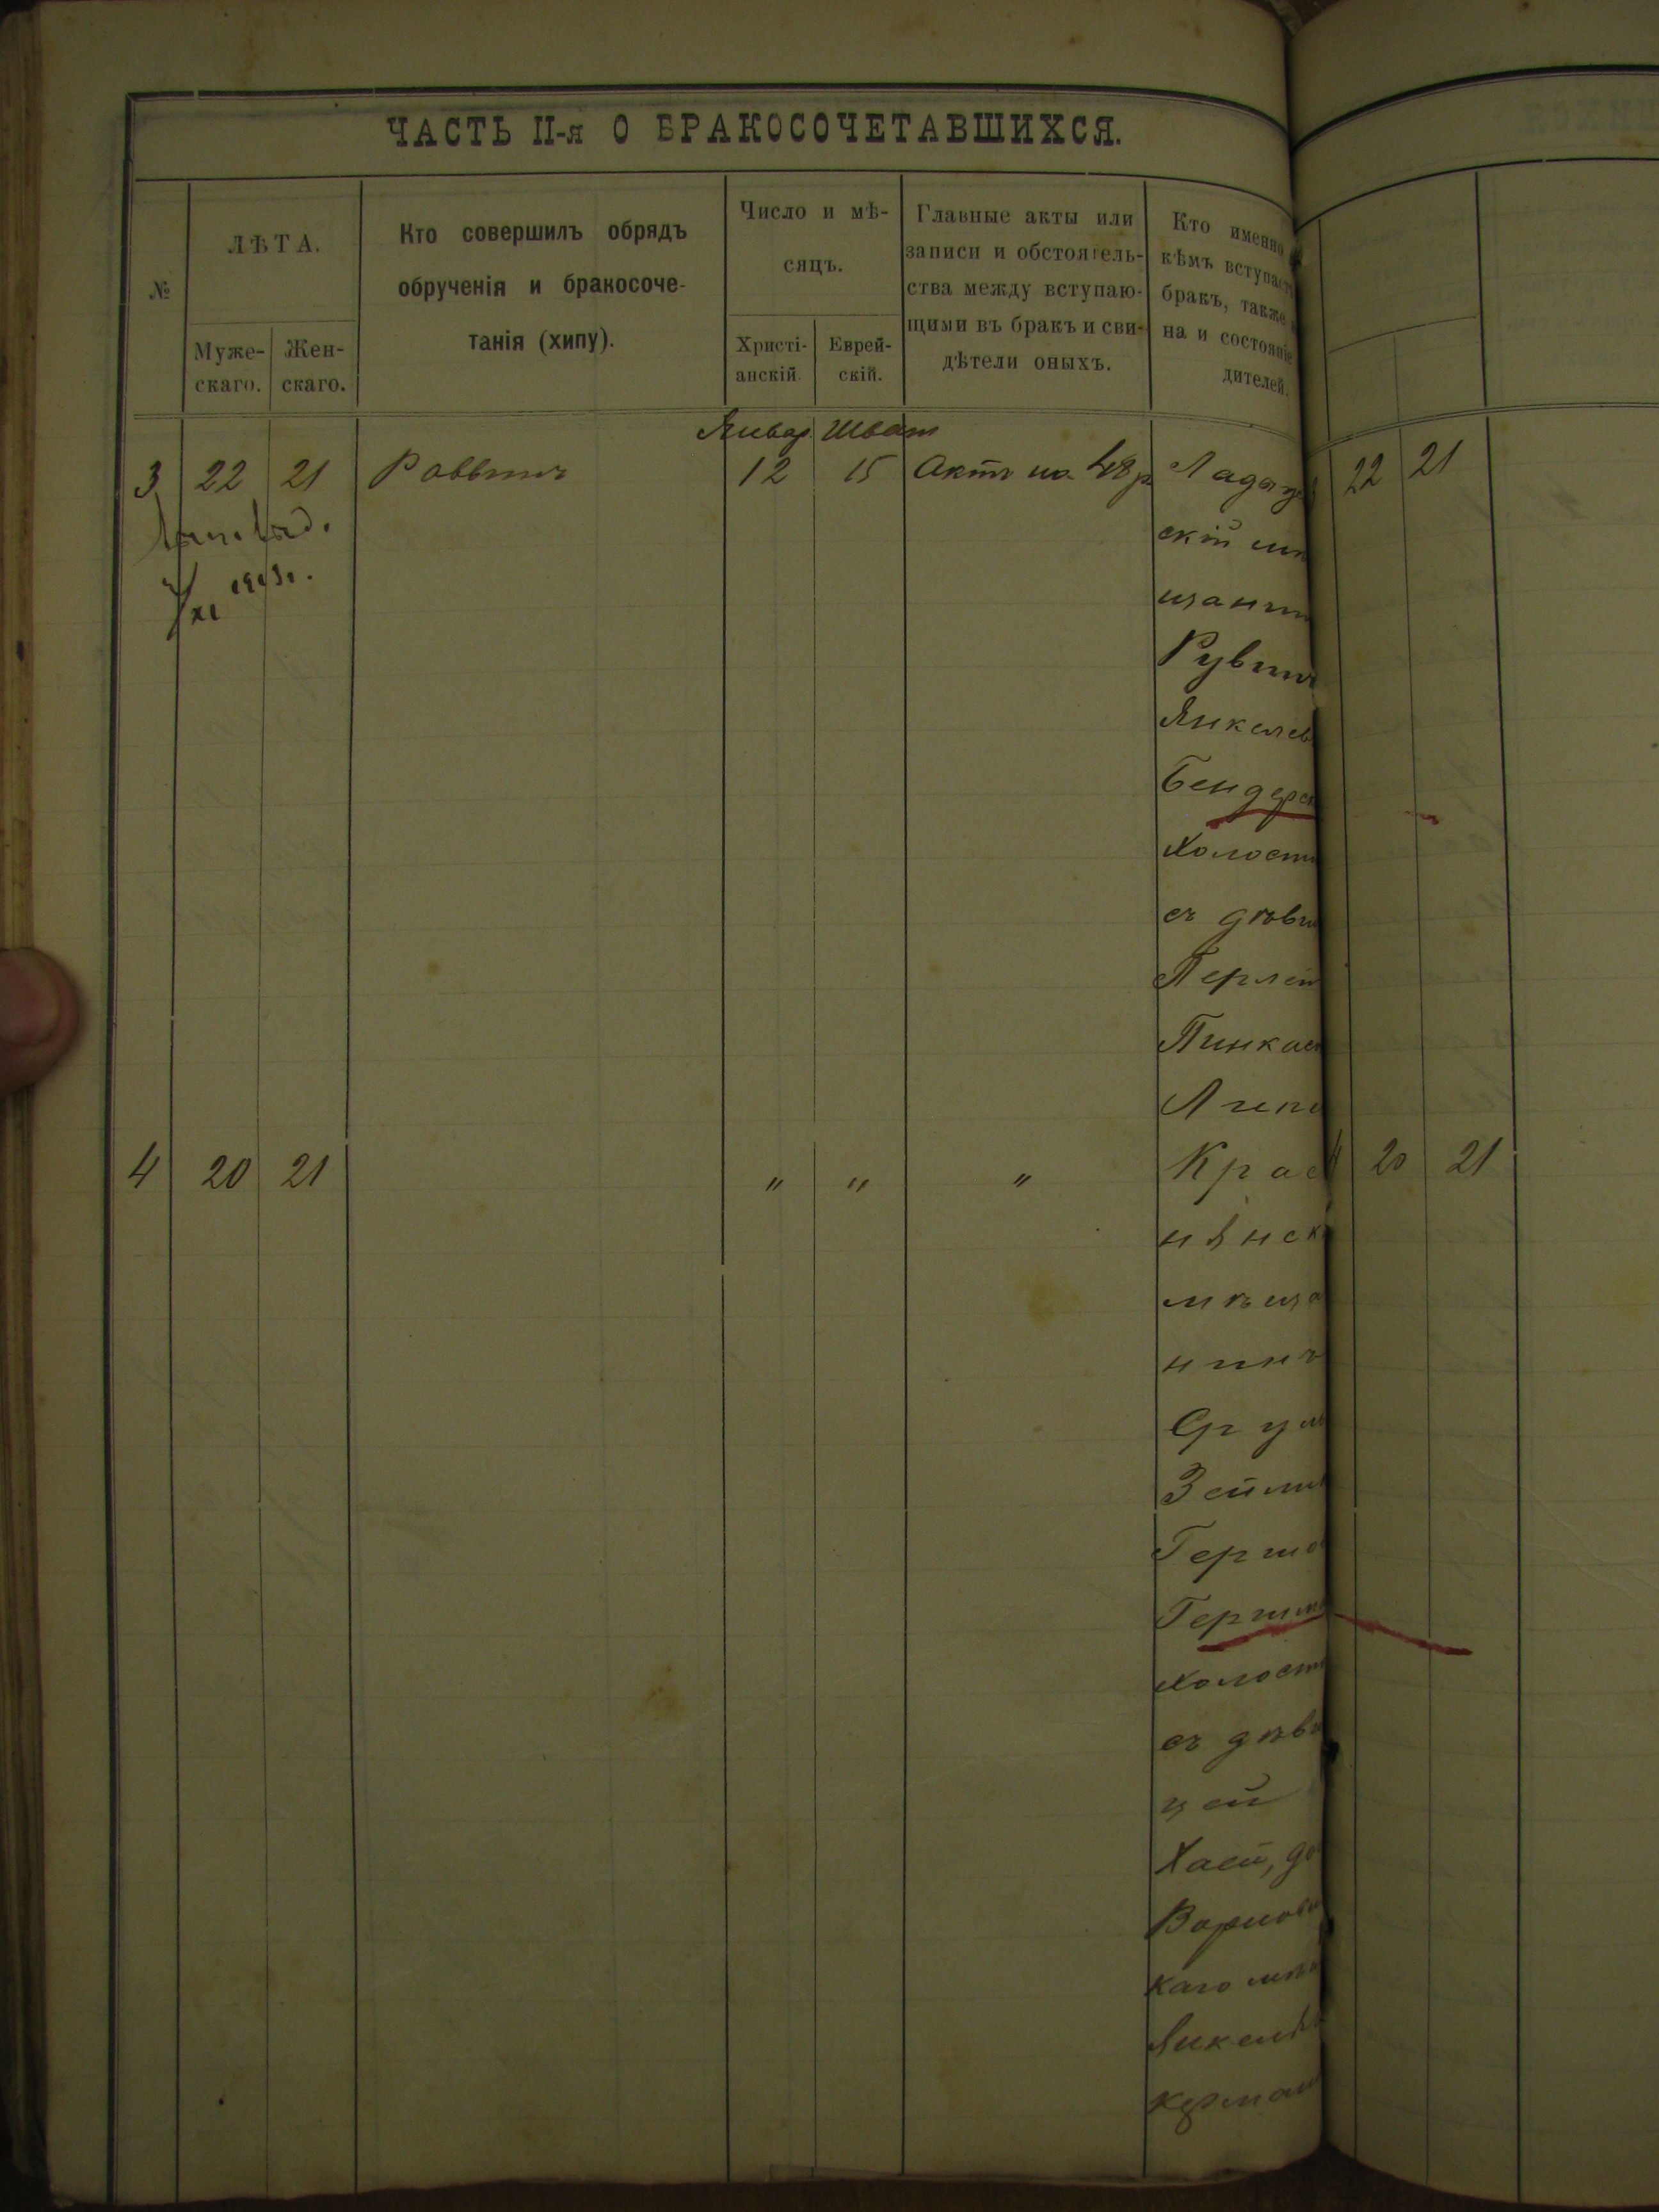 ЧАСТЬ II-я О БРАКОСОЧЕТАВШИХСЯ.
№
ЛѢТА.
Муже-
скаго.
Жен-
скаго.
Кто совершилъ обрядъ
обрученія и бракосоче-
танія (хипу).
Число и мѣ-
сяцъ.
Христі-
анскій.
Еврей-
скій.
Главные акты или
записи и обстоятель-
ства между вступаю-
щими въ бракъ и сви-
дѣтели оныхъ.
Кто именно
кѣмъ вступаетъ
бракъ, также
на и состояніе
дителей.
Январ. Шват
3 22 21 Раввинъ 12 15 Актъ на 48 р Ладыж
скій мѣ
щанин
Рувинъ
Янкелев
Бендерск
холост
съ дѣви
Перлей
Пинкас
4 20 21 " " " Крас
нянск
мѣща
нинъ
Срул
Зейли
Гершо
Гершм
холост
съ дѣви
цей
Хаей, до
каго мѣщ
Янкел
22 21
20 21